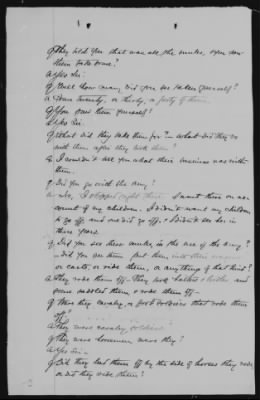 Q They told you that was all the mules, you saw
them take some?
A Yes Sir.
Q Well how many did you see taken yourself?
A Some twenty, or thirty, or forty of them.
Q You saw them yourself?
A Yes Sir.
Q What did they take them for? — what did they do
with them after they took them?
A I couldn't tell you what their business was with
them.
Q Did you go with the army?
A No, I stopped right there. I went there on ac-
count of my children. I didn't want my children
to go off, and one did go off, & I didn't see her in
three years.
Q Did you see these mules, in the use of the army?
— did you see them put them into their wagons
or carts, or ride them, or anything of that kind?
A They rode them off. They took halters & bridles and
some saddled them, & rode them off —
Q Was they cavalry, or foot soldiers that rode them
off?
A They were cavalry soldiers
Q They were horsemen were they?
A Yes Sir —
Q Did they lead them off by the side of horses they rode
or did they ride them?